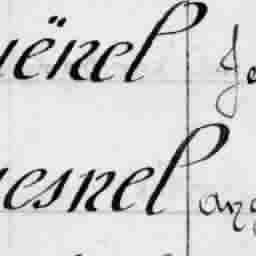 uënel Je
uesnel